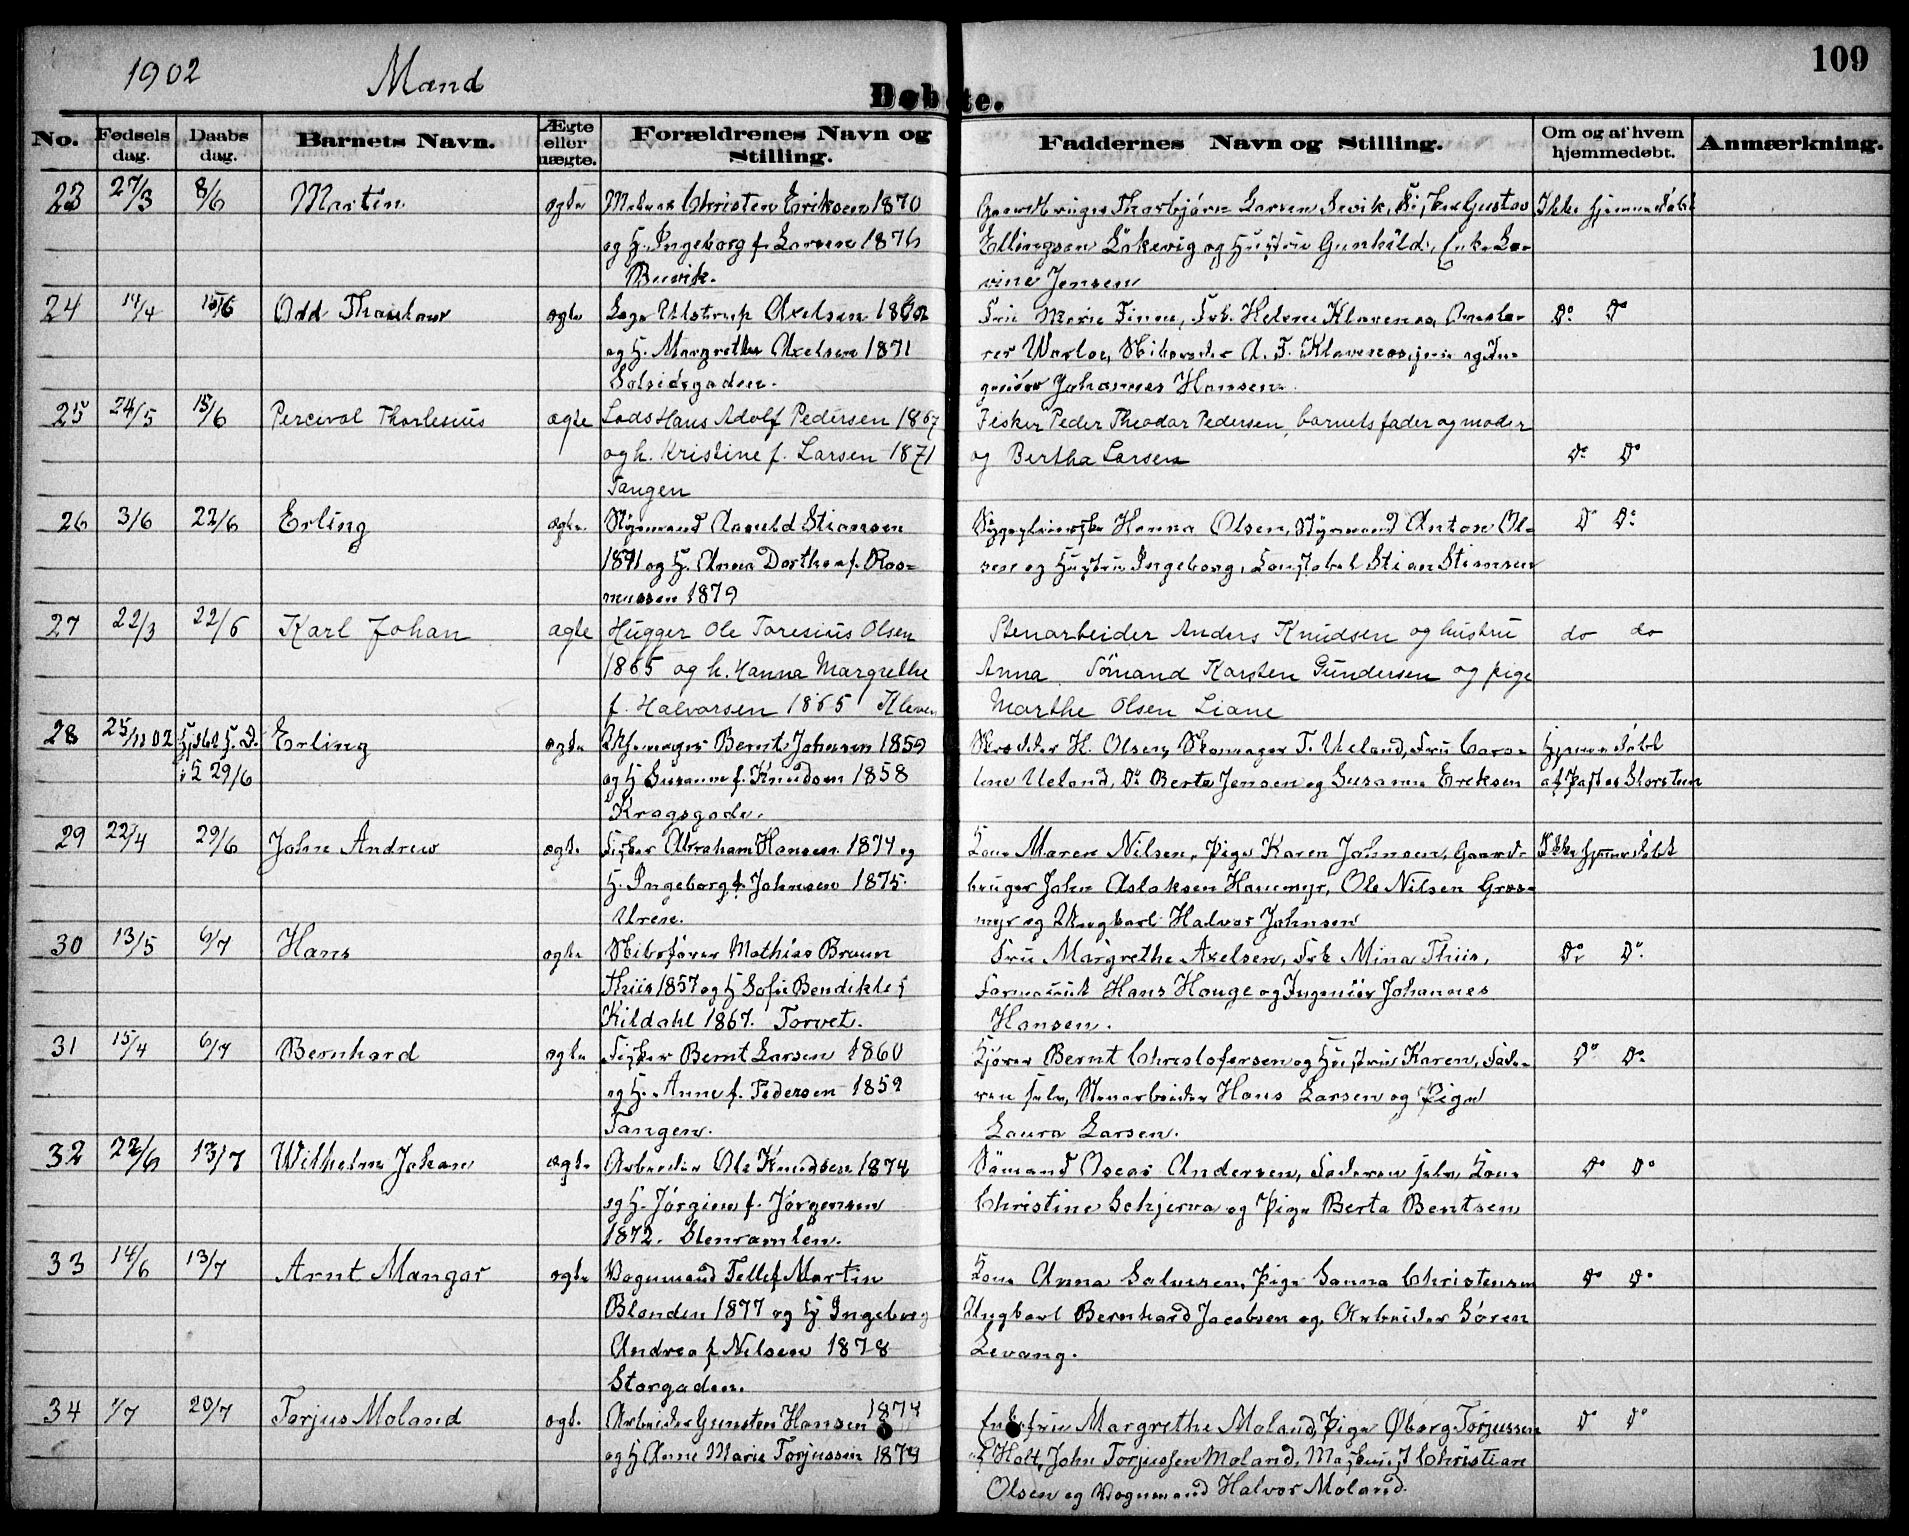 109
1902 Mænd
Døbte.
No. Fødsels dag. Daabs dag. Barnets Navn. Ægte eller uægte. Forældrenes Navn og Stilling. Faddernes Navn og Stilling. Om og af hvem hjemmedøbt. Anmærkning.
23 27/3 8/6 Martin ægte Christen Eriksen 1870 Gaardbruger Thorbjørn Larsen Gustav Ikke hjemmedøbt
og H. Ingeborg f. Larsen 1876 Ellingsen og Hustru Gunhild, Enke La-
Buvik. vine Jensen
24 14/4 15/6 Odd Thaulow ægte Ulstrup Axelsen Fru Marie Finne, Frk. Helene Klavenes, Do Do
og H. Margrethe Axelsen 1871 rer Warloe, Skibsreder A. F. Klavenes, jun og In-
Solsidegaden. geniør Johannes Hansen.
25 24/5 15/6 Percival Thorlesius ægte Lods Hans Adolf Pedersen 1867 Fisker Peder Theodor Pedersen, barnets fader og moder
og h. Kristine f. Larsen 1871 og Bertha Larsen Do Do
Tangen
26 3/6 22/6 Erling ægte. Styrmand Aanuld Stiansen Hanna Olsen, Styrmand Anton Ol- Do Do
1871 og H. Anna Dorthea f. Ras- sen og Hustru Ingeborg, Konstabel Stian Stiansen
mussen 1879
27 22/3 22/6 Karl Johan ægte Hugger Ole Toresius Olsen Stenarbeider Anders Knudsen og hustru do do
1865 og h. Hanna Margrethe Anna Sømand Karsten Gundersen og pige
f. Halvorsen 1865 Kleven Marthe Olsen Liane
28 25/11 02 Erling ægte Bernt Johnsen 1859 Skræder H. Olsen, Skomager T. Ueland, Fru Caro- Hjemmedøbt
i K 29/6 og H Susanne f. Knudsen 1858 line Ueland, Do Berte Jensen og Susanne Ericksen af Pastor Storsteen
Kragsgade.
29 22/4 29/6 John Andrew ægte Fisker Abraham Hansen 1874 og Kone Maren Nilsen, Pige Karen Johnsen, Gaard- Ikke hjemmedøbt
H. Ingeborg f. Johnsen 1875. bruger John Aslaksen Hanemyr, Ole Nilsen Græs-
Uren. myr og Ungkarl Halvor Johnsen
30 13/5 6/7 Hans ægte Skibsfører Mathias Bruun Fru Margrethe Axelsen, Frk Mina Thiis, Do Do
Thiis 1857 og H Sofie Bendikte f Farmaceut Hans Houge og Ingeniør Johannes
Kildahl 1867. Torvet. Hansen.
31 15/4 6/7 Bernhard ægte Fisker Bernt Larsen 1860 Kjører Bernt Christofersen og Hustru Karen, Fade- Do Do
og H. Anne f. Pedersen 1859 ren selv, Stenarbeider Hans Larsen og Pige
Tangen. Laura Larsen.
32 22/6 13/7 Wilhelm Johan ægte Arbeider Ole Knudsen 1874 Sømand Oscar Andersen, Faderen selv, Kone Do Do
og H. Jørgine f. Jørgensen Christine Schjerva og Pige Berta Bentsen
1872. Stenramlen.
33 14/6 13/7 Arnt Mangor ægte Vognmand Tellef Martin Kone Anna Salvesen, Pige Sanna Christensen Do Do
Blanden 1877 og H Ingeborg Ungkarl Bernhard Jacobsen og Arbeider Søren
Andrea f Nilsen 1878 Levang.
Storgaden.
34 1/7 20/7 Torjus Moland ægte Arbeider Gunsten Hansen 1874 Enkefru Margrethe Moland, Pige Øborg Torjussen Do Do
og H Anne Marie Torjussen 1879 Holt, John Torjussen Moland, Maskinist Christian
Olsen og Vognmand Halvor Moland.